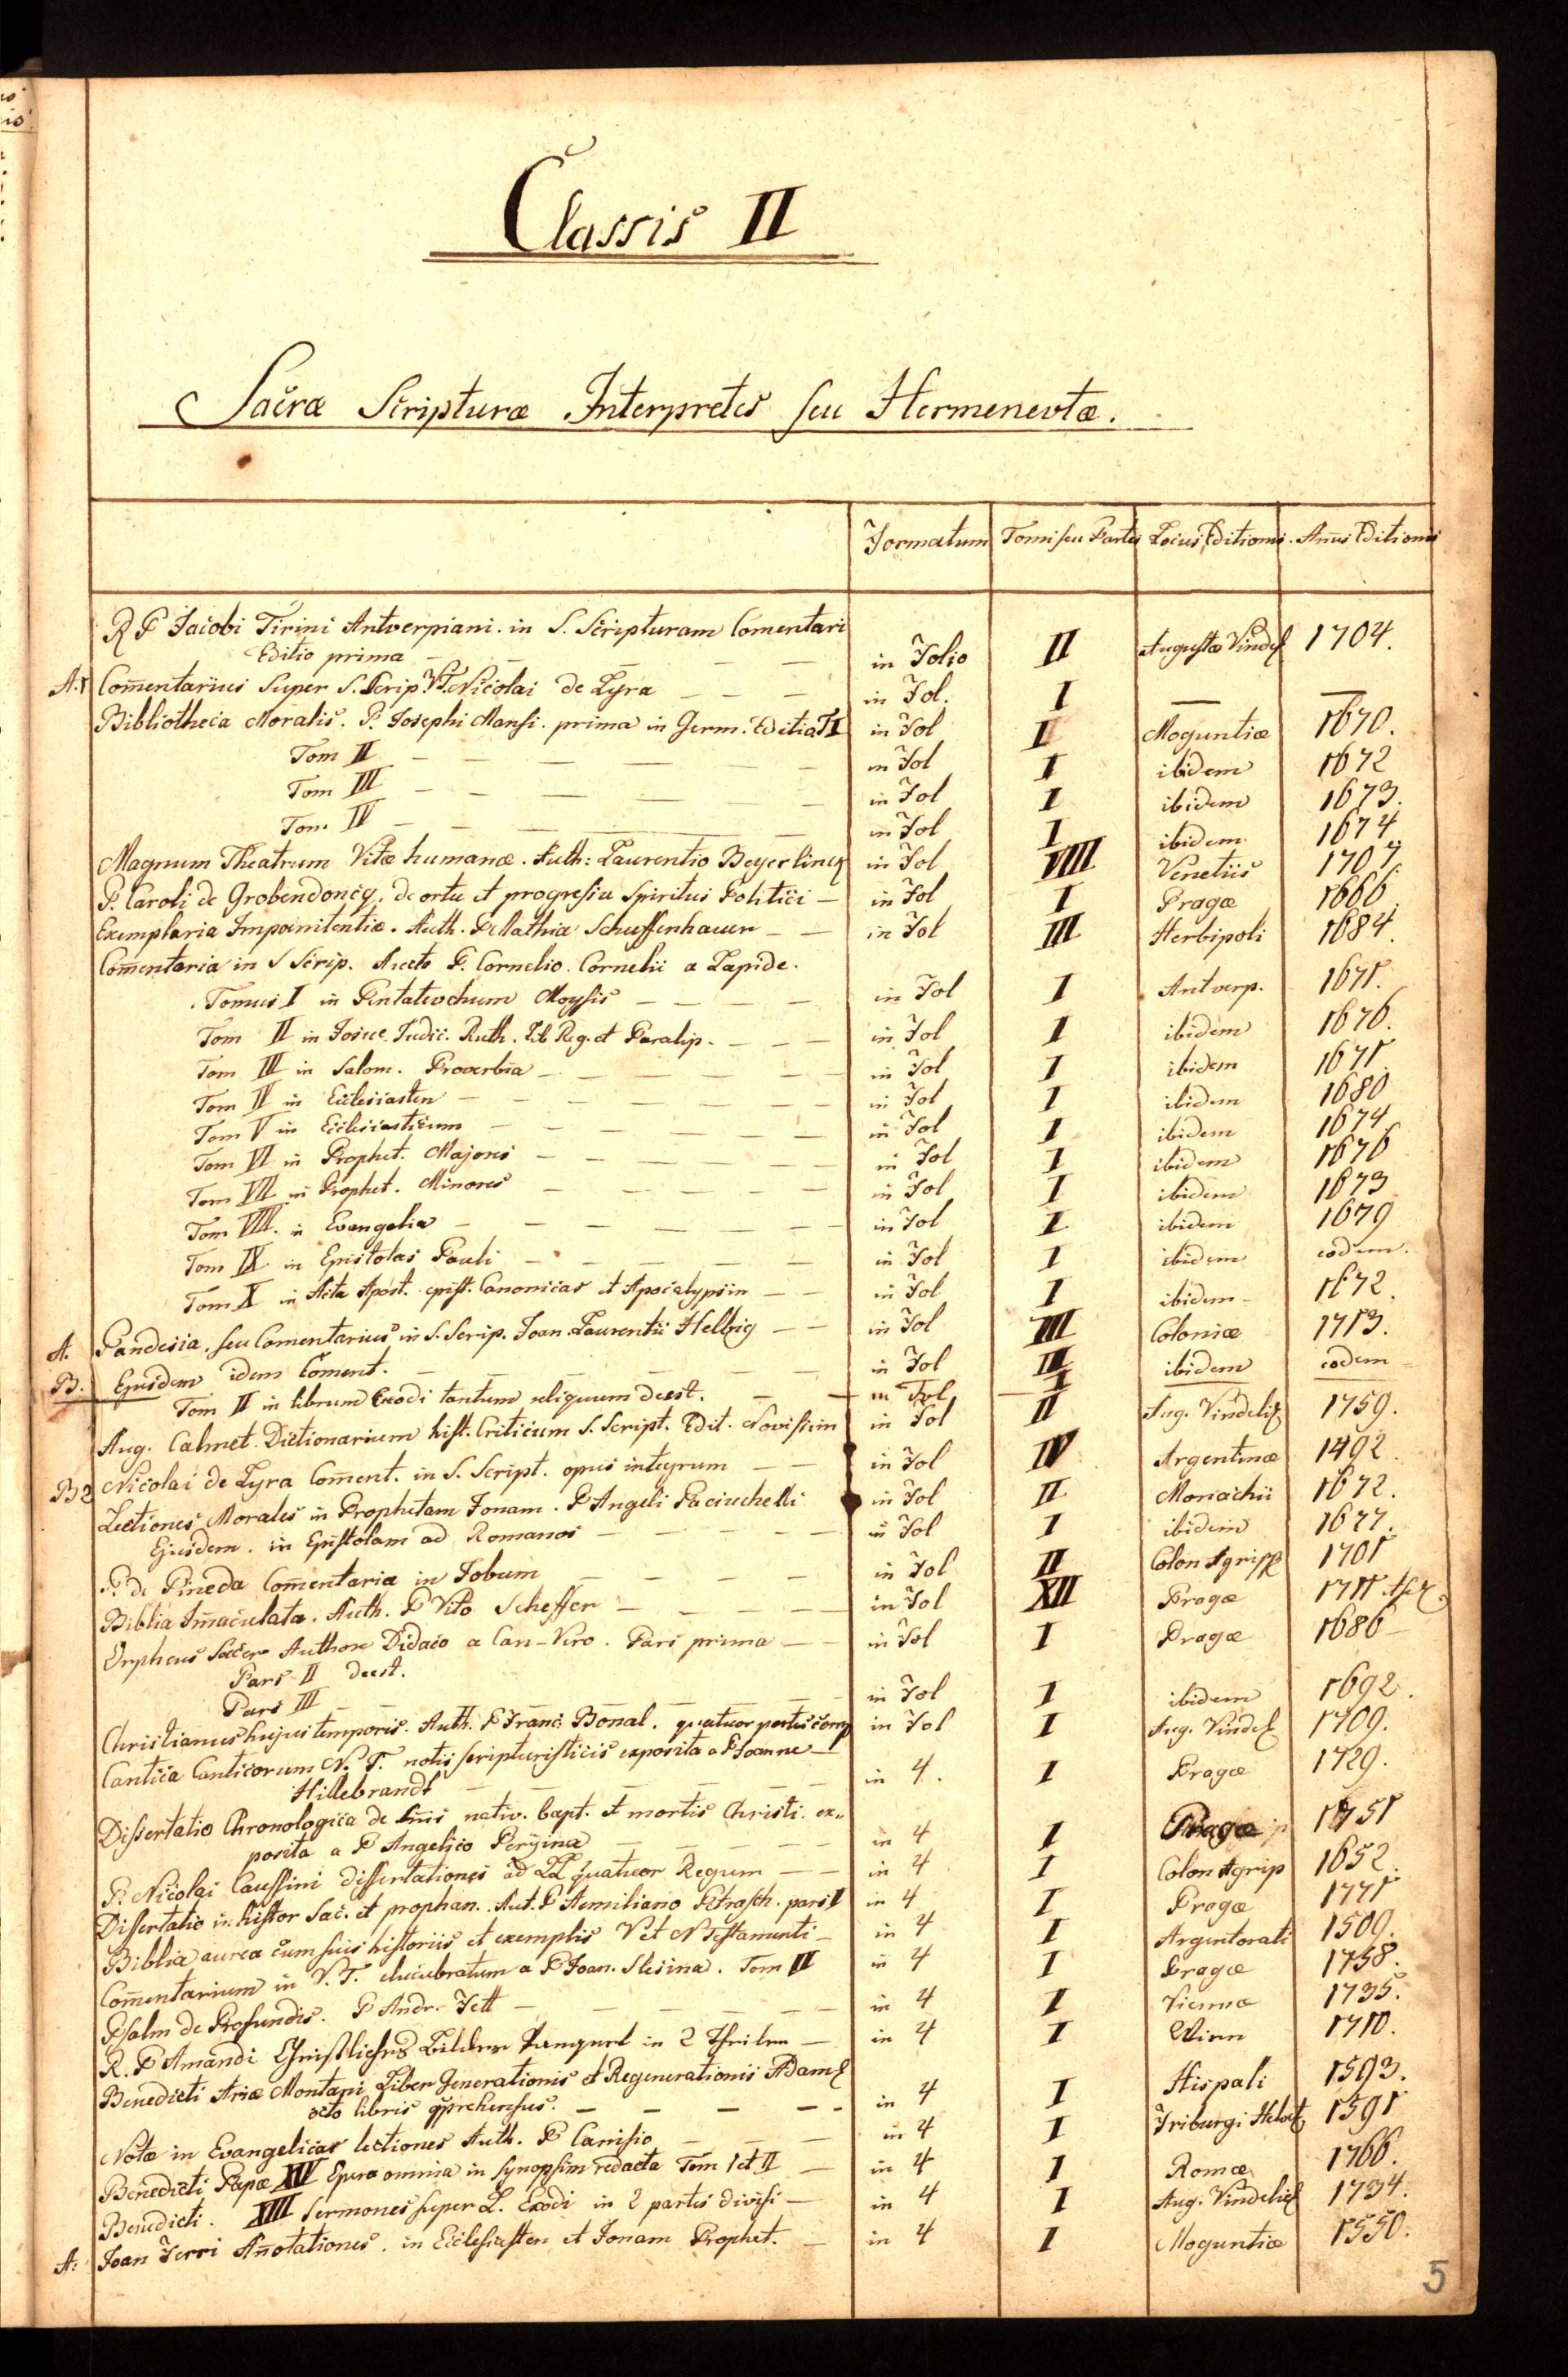 Classis II
Sacræ Scripturæ Interpretes seu Hermenevtæ.
Formatum Tomi seu Partes Locus Editionis. Añus Editionis
R P Jacobi Tirini Antverpiani. in S. Scripturam Comentari
Editio prima — in Folio II Augustæ Vindel 1704.
Com̄entarius super S. Scrip. Nicolai de Lyra — in Fol. I —
Bibliotheca Moralis. P. Josephi Mansi. prima in Germ. Editia T I in Fol I Moguntiæ 1670.
Tom II — in Fol I ibidem 1672
Tom III — in Fol I ibidem 1673.
Tom IV — in Fol I ibidem 1674
Magnum Theatrum Vitæ humanæ. Auth: Laurentio Beyerlinck in Fol VIII Venetiis 1707
P. Caroli de Grobendoncq. de ortu et progressu Spiritus Politici — in Fol I Pragæ 1666
Exemplaria Impœnitentiæ. Auth. P. Mathia Schuffenhauer — in Fol III Herbipoli 1684.
Com̄entaria in S Scrip. Aucto P. Cornelio. Cornelii a Lapide.
Tomus I in Pentatevchum Moysis — in Fol I Antverp. 1671.
Tom II in Josue. Judic. Ruth. Lib Reg. et Paralip. — in Fol I ibidem 1676.
Tom III in Salom. Proverbia — in Fol I ibidem 1671.
Tom IV in Ecclesiasten — in Fol I ibidem 1680
Tom V in Ecclesiasticum — in Fol I ibidem 1674
Tom VI in Prophet. Majores — in Fol I ibidem 1676
Tom VII in Prophet. Minores — in Fol I ibidem 1673
Tom VIII. in Evangelia — in Fol I ibidem 1679
Tom IX in Epistolas Pauli — in Fol I ibidem eodem.
Tom X in Acta Apost. epist. Canonicas et Apocalypsin — in Fol I ibidem — 1672.
A. Pandesia, seu Comentarius in S. Scrip. Joan. Laurentii Helbig — in Fol III Coloniæ 1713.
B. Ejusdem idem Coment. — in Fol III ibidem eodem
Tom II in librum Exodi tantum reliquum deest. — in Fol I
Aug. Calmet. Dictionarium hist. Criticum S. Script. Edit. Novissim in Fol II Aug. Vindelic 1759.
B2 Nicolai de Lyra Com̄ent. in S. Script. opus integrum — in Fol IV Argentinæ 1492
Lectiones Morales in Prophetam Jonam. P Angeli Paciuchelli in Fol II Monachii 1672.
Ejusdem. in Epistolam ad Romanos — in Fol I ibidem 1677.
P. de Pineda Com̄entaria in Jobum — in Fol II Colon Agripp 1701
Biblia Im̄aculata. Auth. P Vito Scheffer — in Fol XII Pragæ 1711
Orpheus Sacer Authore Didaco a Can-Vero. Pars prima — in Fol I Pragæ 1686
Pars II deest.
Pars III — in Fol I ibidem 1692.
Christianus hujus temporis. Auth. P Franc. Bonal. quatuor partes comp in Fol I Aug. Vindel 1709.
Cantica Canticorum N. T. notis scripturisticis exposita a P Joanne
Hillebrandt — in 4. I Pragæ 1729.
Dissertatio Chronologica de Añis nativ. bapt. et mortis Christi. ex-
posita a P Angelico Peryina — in 4 I Pragæ 1751
P. Nicolai Caussini dissertationes ad LL quatuor Regum — in 4 I Colon Agrip 1652.
Dissertatio in histor Sac. et prophan. Aut. P Aemiliano Petrasch. pars I in 4 I Pragæ 1771
Biblia aurea cum suis historiis et exemplis V et N Testamenti — in 4 I Argentorati 1509.
Com̄entarium in V. T. elucubratum a P Joan. Slesina. Tom II in 4 I Pragæ 1758.
Psalm de Profundis. P Andr. Fett — in 4 I Viennæ 1735.
R. P Amandi Christliches Bilder Panquet in 2 Theilen — in 4 I Wien 1710.
Benedicti Ariæ Montani Liber Generationis et Regenerationis Adam
octo libris comprehensus. — in 4 I Hispali 1593.
Notæ in Evangelicas lectiones Auth. P Canisio — in 4 I Friburgi Helvet 1591
Benedicti Papæ XIV Opera omnia in Synopsim redacta Tom I et II — in 4 I Romæ 1766.
Benedicti. XIII Sermones super L. Exodi in 2 partes divisi — in 4 I Aug. Vindelic 1734.
A: Joan Ferri Añotationes. in Ecclesiasten et Jonam Prophet. — in 4 I Moguntiæ 1550.
5